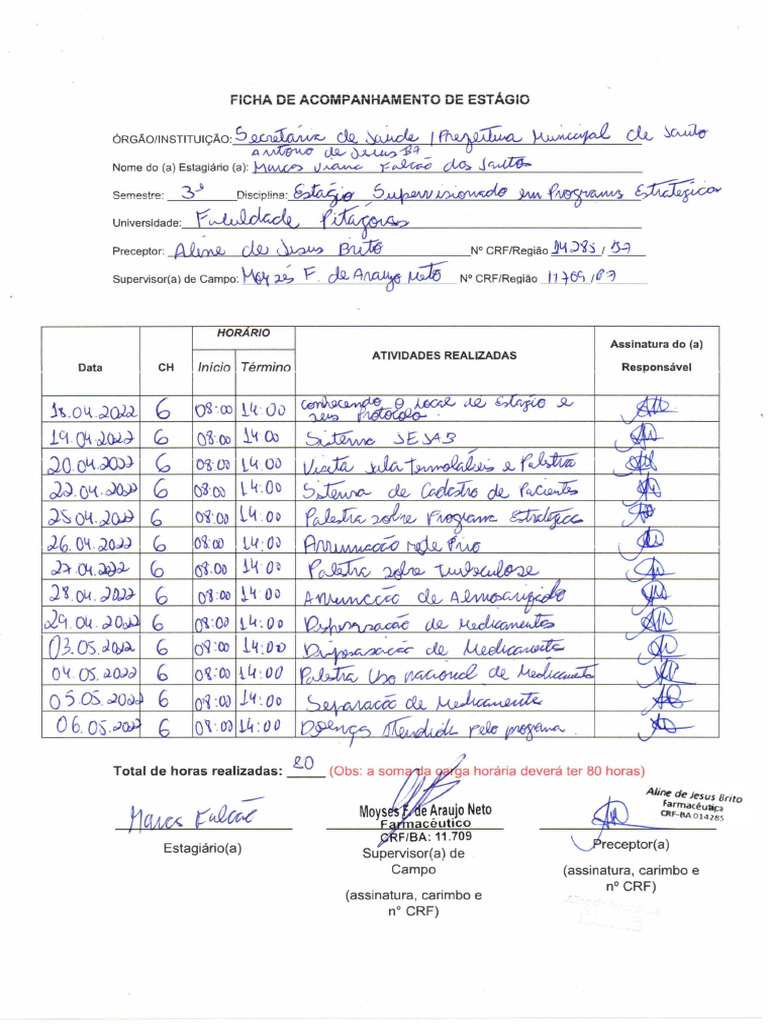 FICHA DE ACOMPANHAMENTO DE ESTÁGIO
ÓRGÃO/INSTITUIÇÃO: Secretária de Saúde / Prefeitura Municipal de Santo
Antonio de Jesus BA
Nome do (a) Estagiário (a): Marcos Viana Falcão dos Santos
Semestre: 3º Disciplina: Estágio Supervisionado em Programs Estratégicos
Universidade: Faculdade Pitágoras
Preceptor: Aline de Jesus Brito Nº CRF/Região 14285 / BA
Supervisor(a) de Campo: Moysés F. de Araujo Neto Nº CRF/Região 11709 / BA
HORÁRIO
Data CH Início Término ATIVIDADES REALIZADAS Assinatura do (a) Responsável
18.04.2022 6 08:00 14:00 conhecendo o local de Estágio e
seus Protocolo
19.04.2022 6 08:00 14:00 Sistema SESAB
20.04.2022 6 08:00 14:00 Visita sala Termolábeis e Palestra
22.04.2022 6 08:00 14:00 Sistema de Cadastro de Pacientes
25.04.2022 6 08:00 14:00 Palestra sobre Programa Estratégico
26.04.2022 6 08:00 14:00 Arrumação rede Frio
27.04.2022 6 08:00 14:00 Palestra sobre Tuberculose
28.04.2022 6 08:00 14:00 Arrumação de Almoxarifado
29.04.2022 6 08:00 14:00 Dispensação de Medicamentos
03.05.2022 6 08:00 14:00 Dispensação de Medicamento
04.05.2022 6 08:00 14:00 Palestra Uso nacional de Medicamento
05.05.2022 6 08:00 14:00 Separação de Medicamento
06.05.2022 6 08:00 14:00 Doença Atendida pelo programa.
Total de horas realizadas: 80 (Obs: a soma da carga horária deverá ter 80 horas)
Marcos Falcão
Estagiário(a)
Moyses F. de Araujo Neto
Farmacêutico
CRF/BA: 11.709
Supervisor(a) de
Campo
(assinatura, carimbo e
n° CRF)
Aline de Jesus Brito
Farmacêutica
CRF-BA 014285
Preceptor(a)
(assinatura, carimbo e
nº CRF)